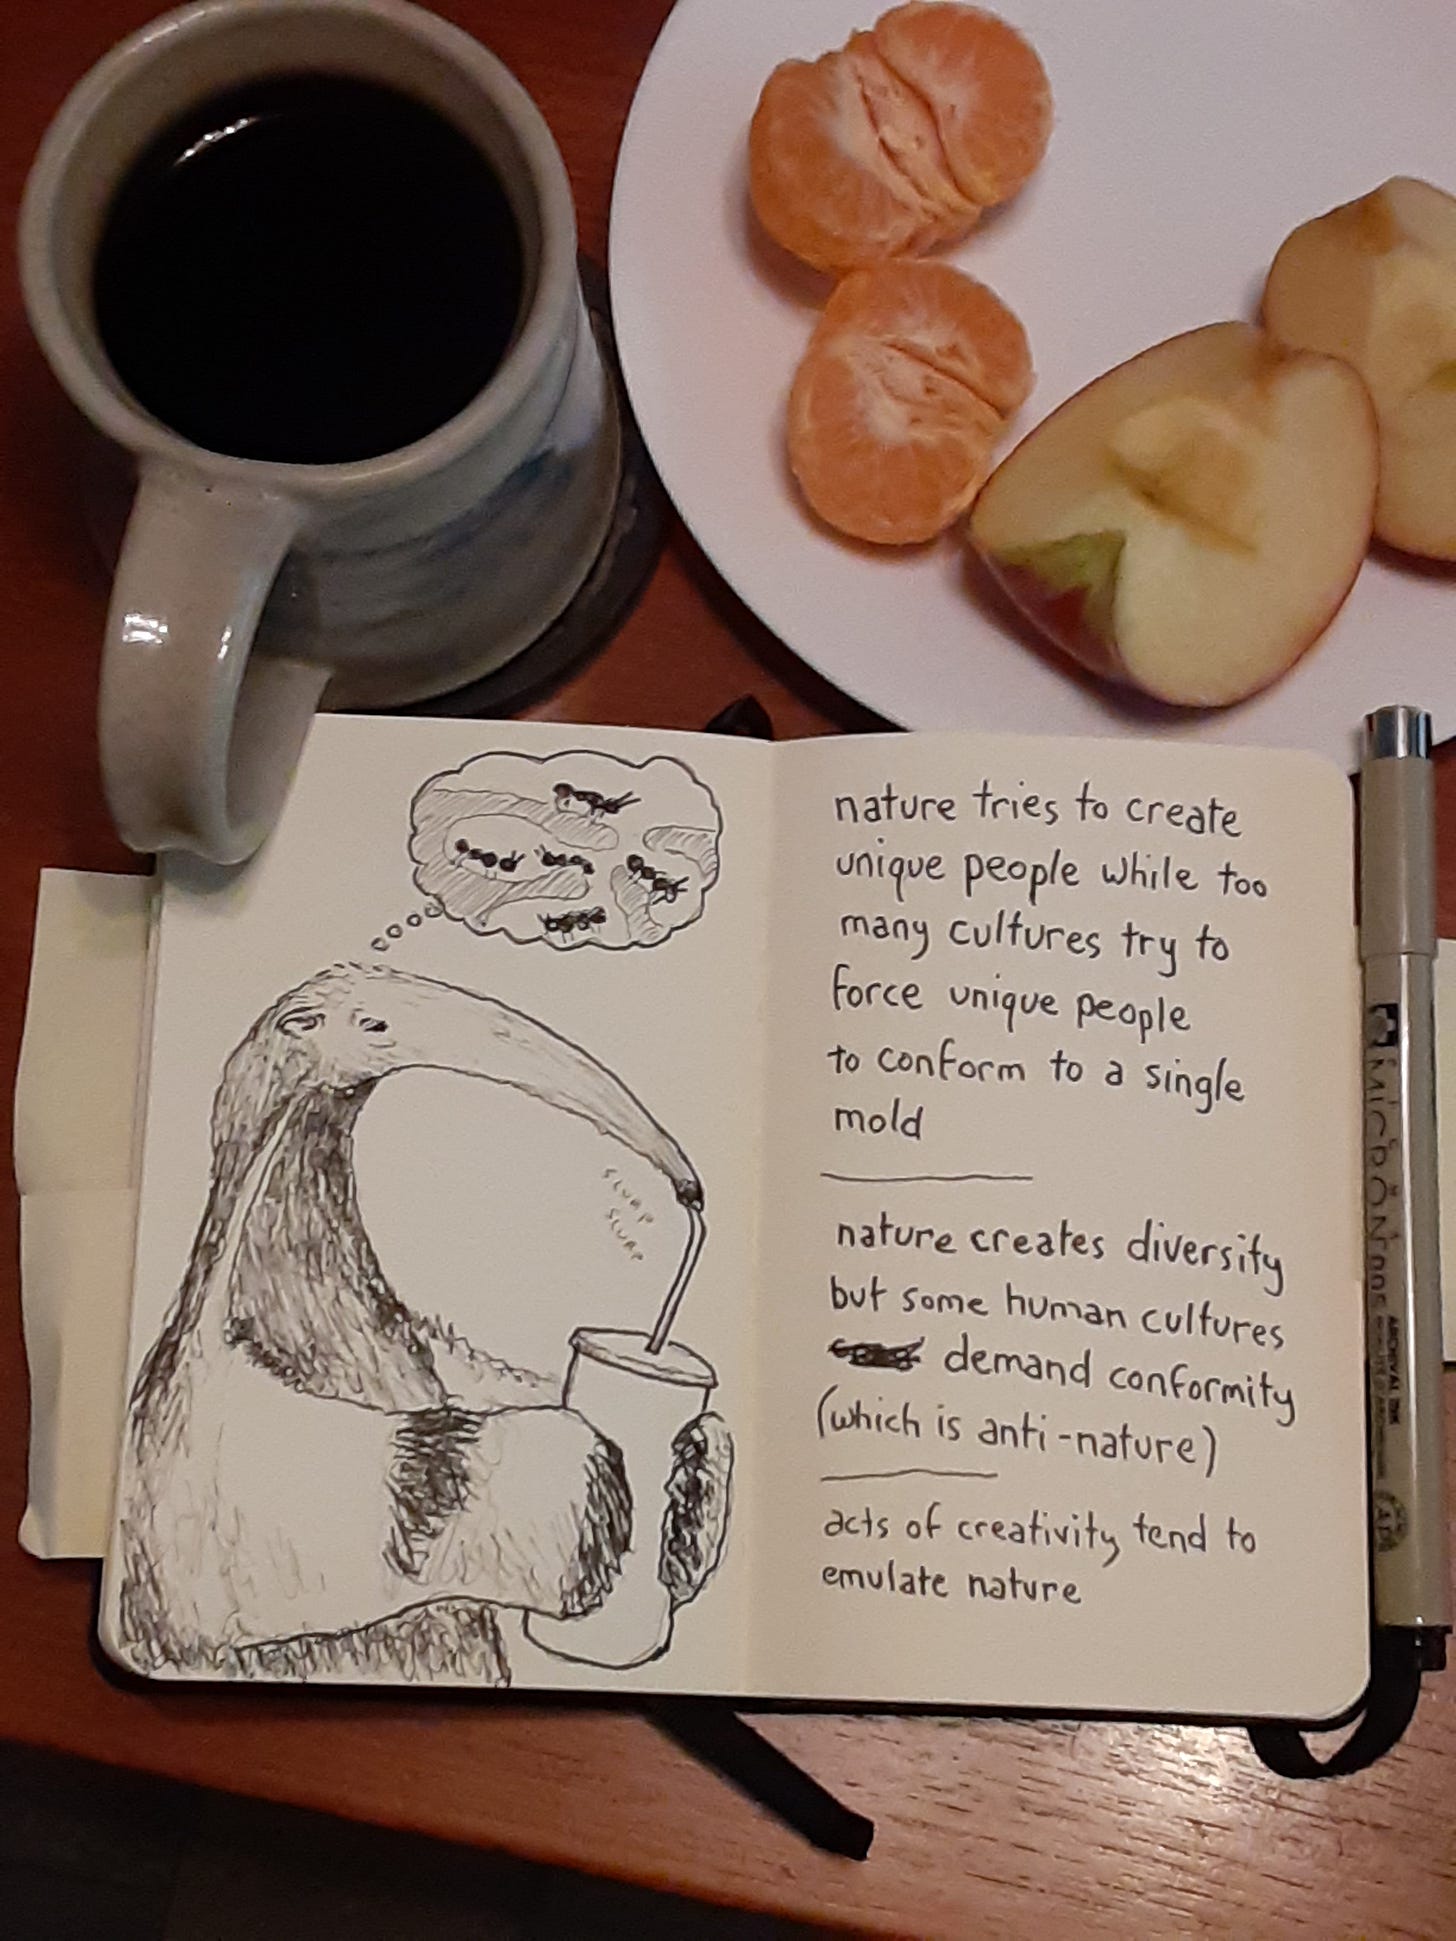 SLURP
SLURP
nature tries to create
unique people while too
many cultures try to
force unique people
to conform to a single
mold
nature creates diversity
but some human cultures
demand conformity
(which is anti-nature)
acts of creativity tend to
emulate nature
MICRON
ARCHIVAL INK